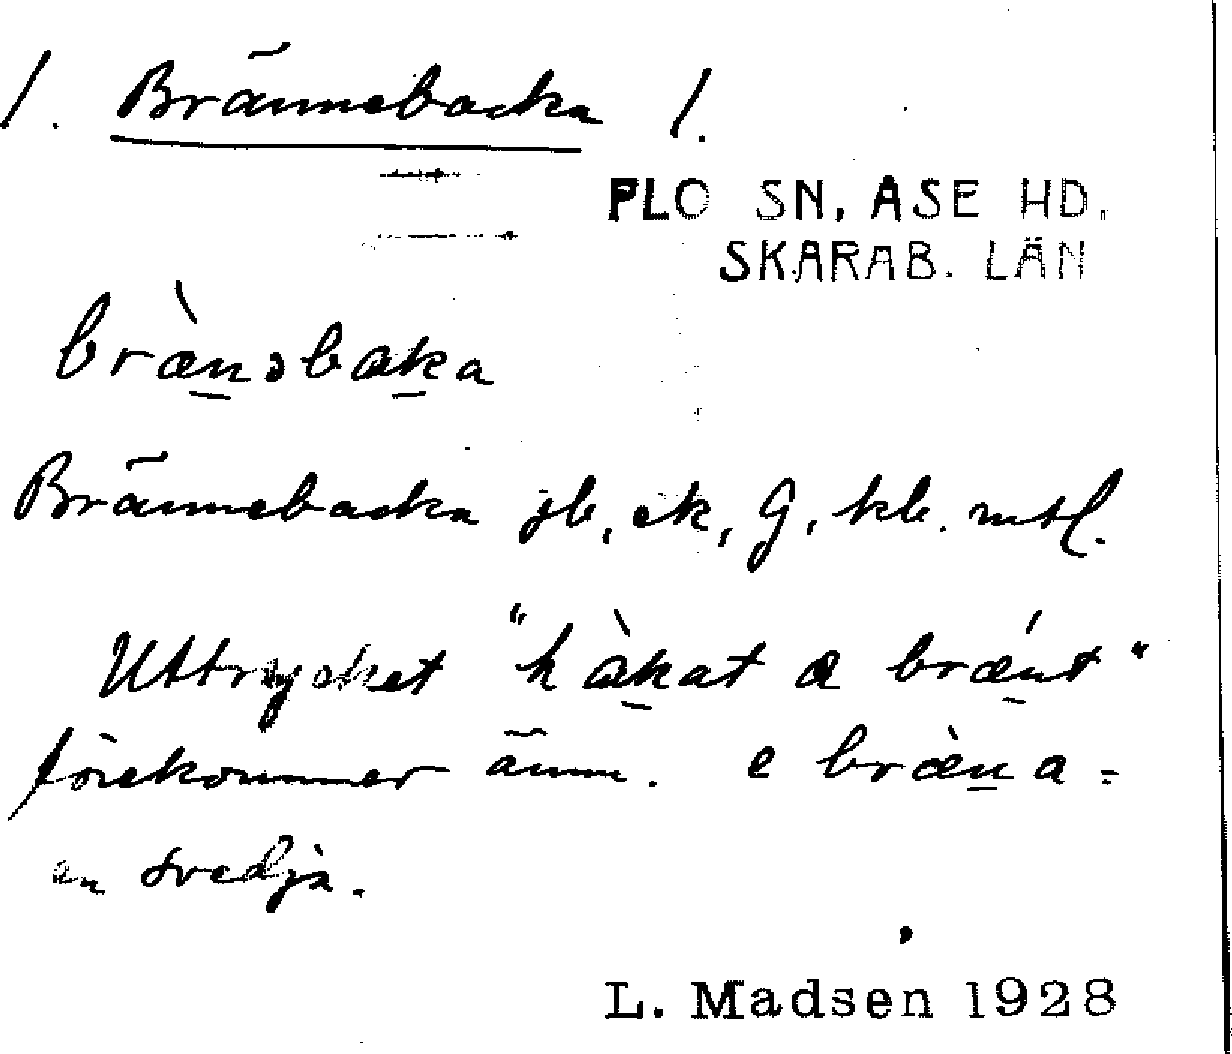 1. Brännebacka 1.
FLO SN, ÅSE HD.
SKARAB. LÄN
bræ̀nəbaka
Brännebacka jb, ek, G, kb. mtl.
Uttrycket "hàkat a brǽnt"
förekommer ännu. e bræ̀na =
en svedja.
L. Madsen 1928